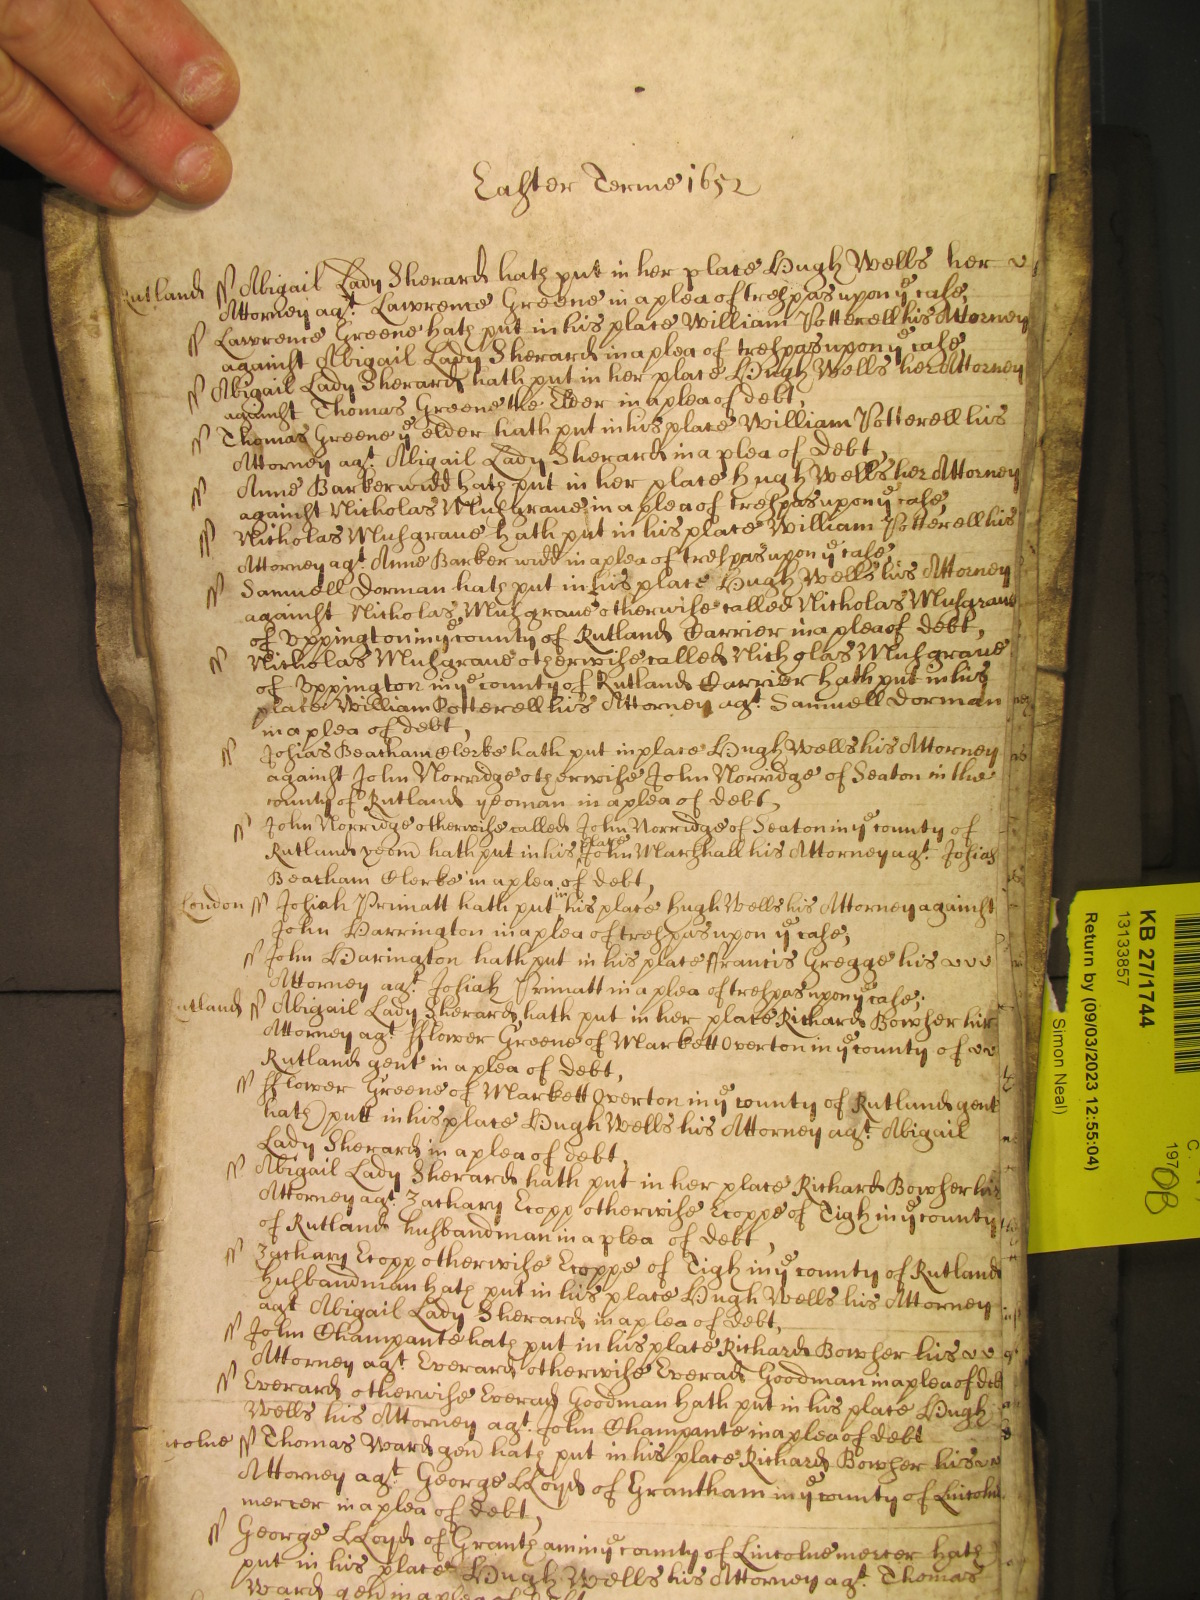 Easter Terme 1652
Rutland ss Abigail Lady Sherard hath put in her place Hugh Wells her
Attorney agt. Lawrence Greene in a plea of trespas upon ye case,
ss Lawrence Greene hath put in his place William Potterell his Attorney
against Abigail Lady Sherard in a plea of trespas upon ye case
ss Abigail Lady Sherard hath put in her place Hugh Wells her Attorney
against Thomas Greene the Elder in a plea of debt,
ss Thomas Greene ye elder hath put in his place William Potterell his
Attorney agt. Abigail Lady Sherard in a plea of debt,
ss Anne Barker widd hath put in her place Hugh Wells her Attorney
against Nicholas Musgraue in a plea of trespas upon ye case,
ss Nicholas Musgraue hath put in his place William Potterell his
Attorney agt. Anne Barker widd in a plea of trespas upon ye case,
ss Samuell Dorman hath put in his place Hugh Wells his Attorney
against Nicholas Musgraue otherwise called Nicholas Musgraue
of Vppington in ye county of Rutland Carrier in a plea of debt,
ss Nicholas Musgraue otherwise called Nicholas Musgraue
of Vppington in ye county of Rutland Carrier hath put in his
place William Potterell his Attorney agt. Samuell Dorman
in a plea of debt,
ss Josias Beacham Clerke hath put in place Hugh Wells his Attorney
against John Norridge otherwise John Norridge of Seaton in the
county of Rutland yeoman in a plea of debt,
ss John Norridge otherwise called John Norridge of Seaton in ye county of
Rutland yeom hath put in his place John Marshall his Attorney agt. Josias
Beacham Clerke in a plea of debt,
London ss Josiah Primatt hath put in his place Hugh Wells his Attorney against
John Harrington in a plea of trespas upon ye case,
ss John Harington hath put in his place ffrancis Gregge his
Attorney agt. Josiah Primatt in a plea of trespas upon ye case,
utland ss Abigail Lady Sherard hath put in her place Richard Bowher hir
Attorney agt. fflower Greene of Markett Overton in ye county of
Rutland gent in a plea of debt,
ss fflower Greene of Markett Overton in ye county of Rutland gent
hath putt in his place Hugh Wells his Attorney agt. Abigail
Lady Sherard in a plea of debt,
ss Abigail Lady Sherard hath put in her place Richard Bowher hir
Attorney agt. Zachary Ecopp otherwise Ecoppe of Tigh in ye county
of Rutland husbandman in a plea of debt,
ss Zachary Ecopp otherwise Ecoppe of Tigh in ye county of Rutland
husbandman hath put in his place Hugh Wells his Attorney
agt Abigail Lady Sherard in a plea of debt,
ss John Champante hath put in his place Richard Bowher his
Attorney agt. Everard otherwise Everad Goodman in a plea of debt
ss Everard otherwise Everad Goodman hath put in his place Hugh
Wells his Attorney agt. John Champante in a plea of debt
ncolne ss Thomas Ward gen hath put in his place Richard Bowher his
Attorney agt. George LLoyd of Grantham in ye county of Lincoln
mercer in a plea of debt,
ss George LLoyd of Grantham in ye county of Lincolne mercer hath
put in his place Hugh Wells his Attorney agt. Thomas
Ward gen in a plea of debt
KB 27/1744
13133857
Return by (09/03/2023 12:55:04)
Simon Neal)